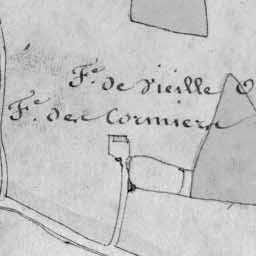 F.e de Vieille
F.e des Cormiers